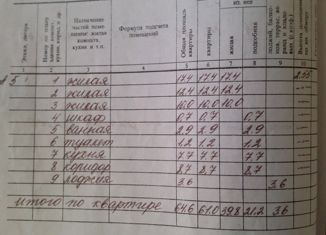 Этаж, литера
Назначение частей помещения: жилая комната, кухня и т.п.
Формула подсчета помещений
Общая площадь квартиры
из них
квартиры
жилая
подсобная
1 2 3 4 5 6 7 8 9 10
5 1 жилая 17.4 17.4 17.4 2.55
2 жилая 12.4 12.4 12.4
3 жилая 10.0 10.0 10.0
4 шкаф 0.7 0.7 0.7
5 ванная 2.9 2.9 2.9
6 туалет 1.2 1.2 1.2
7 кухня 7.7 7.7 7.7
8 коридор 8.7 8.7 8.7
9 лоджия 3.6 3.6
итого по квартире 64.6 61.0 39.8 21.2 3.6